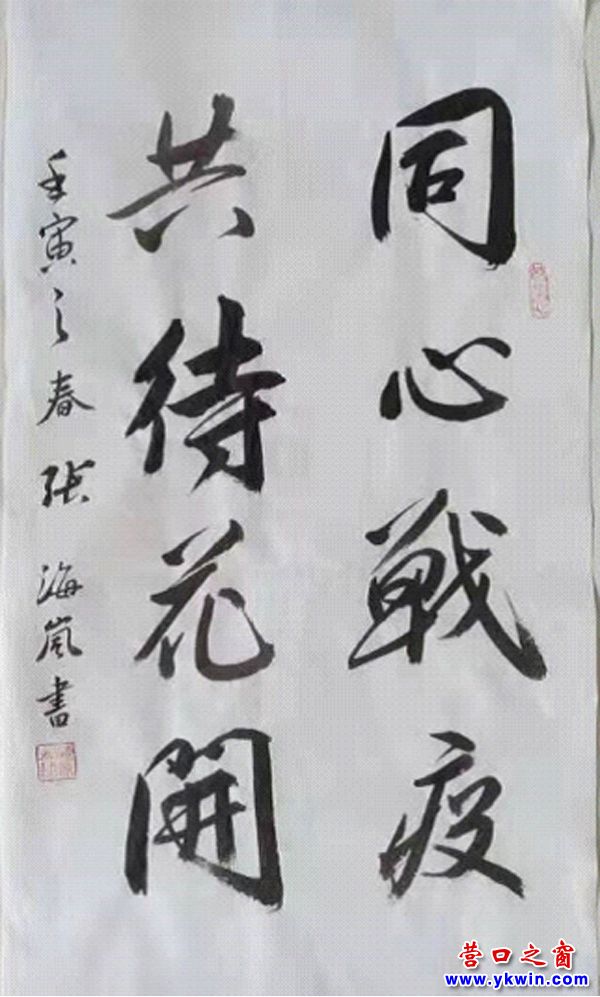 同心戰疫
共待花開
壬寅之春 张海嵐書
营口之窗
www.ykwin.com